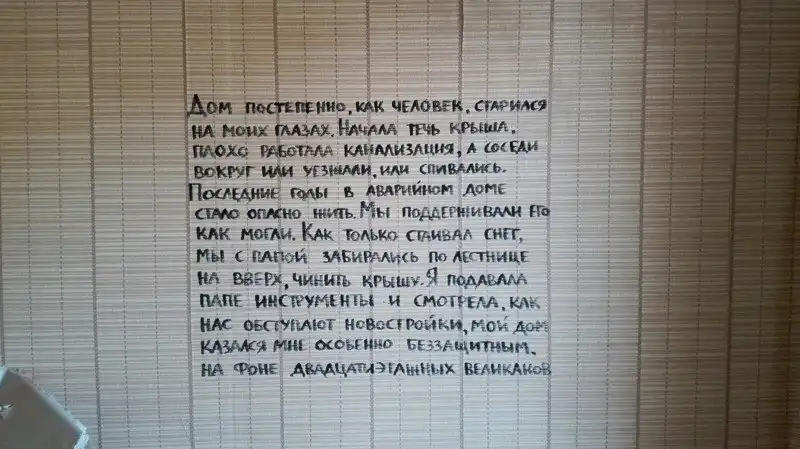 Дом постепенно, как человек, старился
на моих глазах. Начала течь крыша,
плохо работала канализация, а соседи
вокруг или уезжали, или спивались.
Последние годы в аварийном доме
стало опасно жить. Мы поддерживали его
как могли. Как только стаивал снег,
мы с папой забирались по лестнице
на вверх, чинить крышу. Я подавала
папе инструменты и смотрела, как
нас обступают новостройки, мой дом
казался мне особенно беззащитным,
на фоне двадцатиэтажных великаков